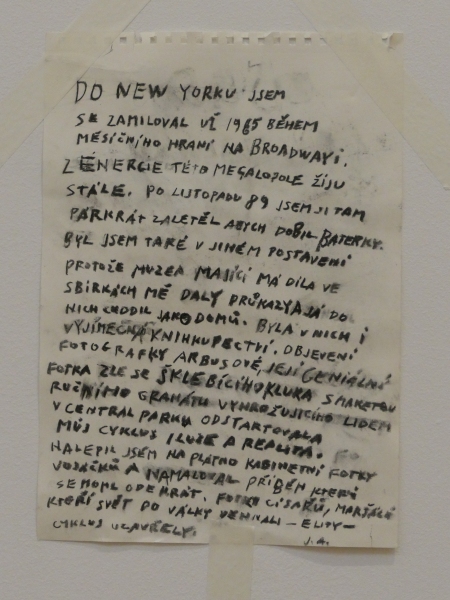 DO NEW YORKU JSEM
SE ZAMILOVAL UŽ 1985 BĚHEM
MĚSÍČNÍHO HRANÍ NA BROADWAYI.
Z ENERGIE TÉTO MEGALOPOLE ŽIJU
STÁLE. PO LISTOPADU 89 JSEM JI TAM
PÁRKRÁT ZALETĚL ABYCH DOBIL BATERKY.
BYL JSEM TAKÉ V JINÉM POSTAVENÍ
PROTOŽE MUZEA MAJÍCÍ MÁ DÍLA VE
SBÍRKÁCH MĚ DALY PRŮKAZY A JÁ DO
NICH CHODIL JAKO DOMŮ. BYLA V NICH I
VÝJIMEČNÁ KNIHKUPECTVÍ. OBJEVENÍ
FOTOGRAFKY ARBUSOVÉ, JEJÍ GENIÁLNÍ
FOTKA ZLE SE ŠKLEBÍCÍHO KLUKA S MAKETOU
RUČNÍHO GRANÁTU VYHROŽUJÍCÍHO LIDEM
V CENTRAL PARKU ODSTARTOVALA
MŮJ CYKLUS ILUZE A REALITA.
NALEPIL JSEM NA PLÁTNO KABINETNÍ FOTKY
VOJÁČKŮ A NAMALOVAL PŘÍBĚH KTERÝ
SE MOHL ODEHRÁT. FOTKY CÍSAŘŮ, MARŠÁLŮ
KTEŘÍ SVĚT DO VÁLKY VEHNALI – ELITY –
CYKLUS UZAVŘELY.
J.A.